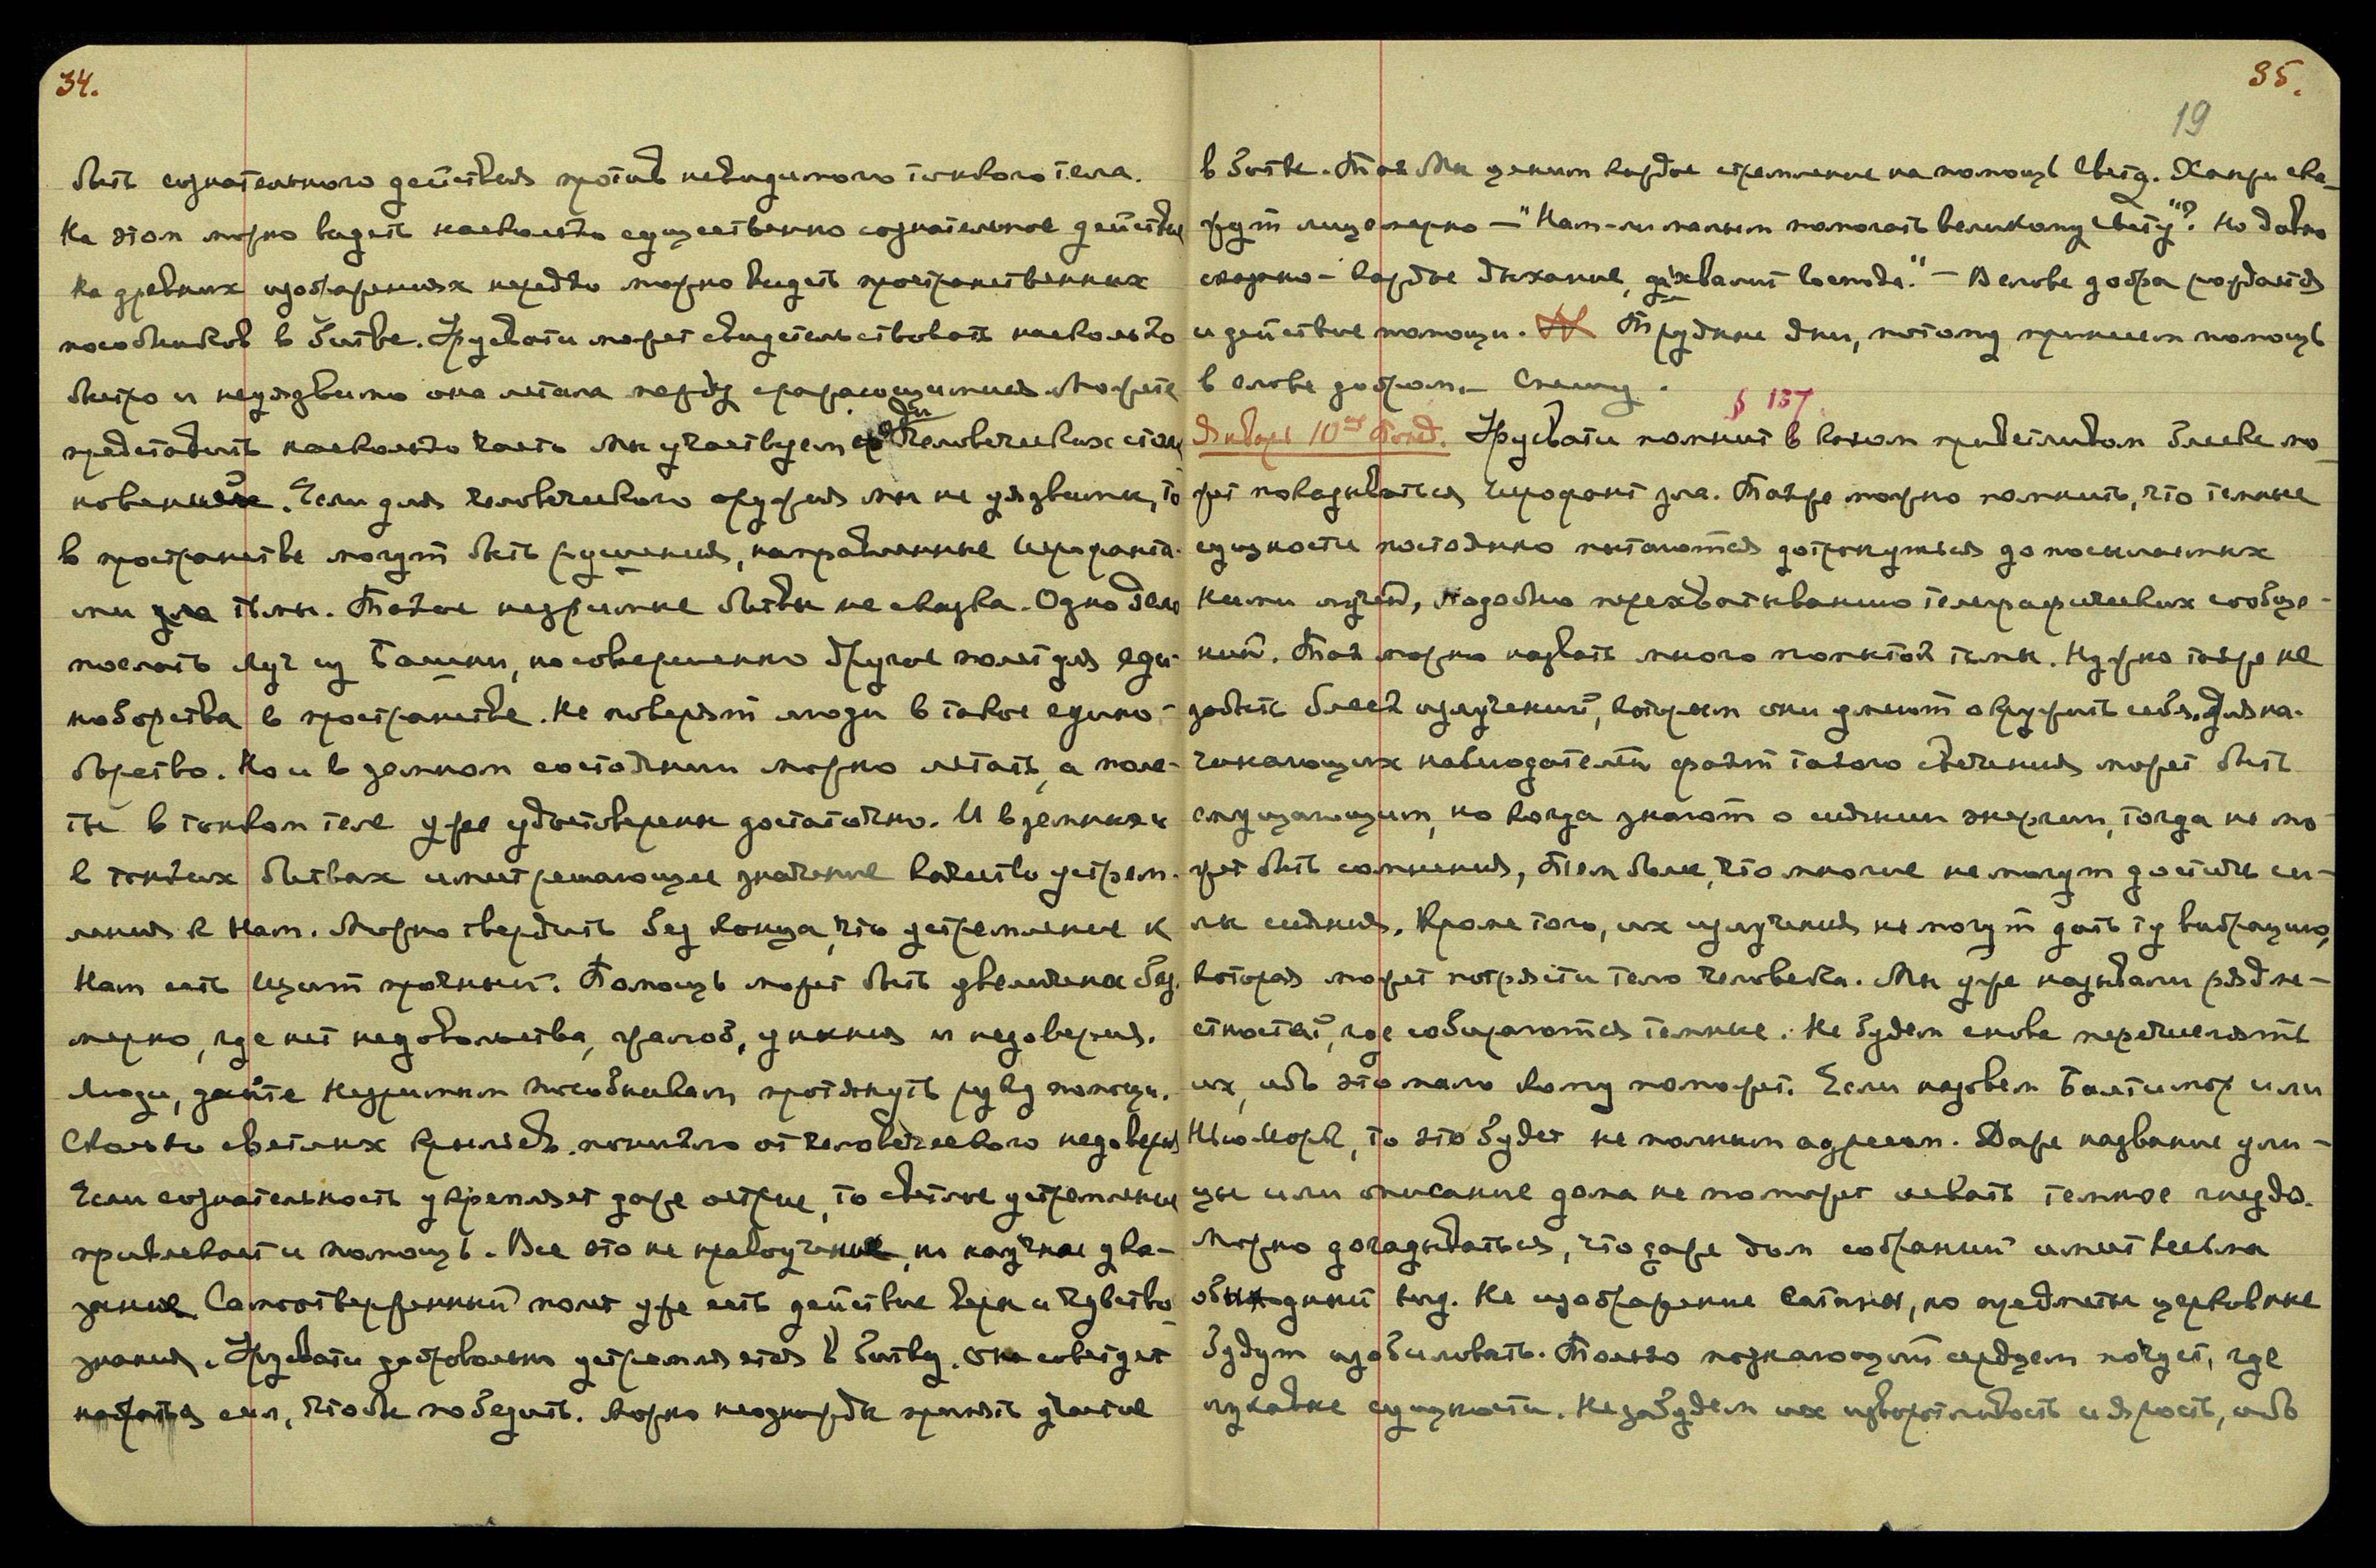 34.
быть сознательного действия против невидимого тонкого тела.
На этом можно видеть насколько существенно сознательное действие
На древних изображениях нередко можно видеть пространственных
пособников в битве. Урусвати может свидетельствовать насколько
быстро и неуязвимо она летала между сражающимися. Можете
представить насколько часто Мы участвуем в человеческих столк
новениях. Если для человеческого оружия мы не уязвимы, то
в пространстве могут быть рушения, направленные Иерофанта-
ми зла тьмы. Такие незримые битвы не сказка. Одно дело
послать луч из Башни, но совершенно другое полет для еди-
ноборства в пространстве. Не поверят люди в такое едино-
борство. Но и в земном состоянии можно летать, а поле-
ты в тонком теле уже удостоверены достаточно. И в земных и
в тонких битвах имеет решающее значение качество устрем-
ления к Нам. Можно твердить без конца, что устремление к
Нам есть щит прочный. Помощь может быть увеличена без-
мерно, где нет недовольства, жалоб, уныния и недоверия.
Люди, дайте Незримым Пособникам протянуть руку помощи.
Сколько светлых крыльев поникло от человеческого недоверия
Если сознательность укрепляет даже острие, то светлое устремление
привлекает и помощь. Все это не нравоучение, но научное ука-
зание Самоотверженный полет уже есть действие веры и чувство-
знания. Урусвати добровольно устремляется в битву. Она советует
набраться сил, чтобы победить. Можно неоднажды принять участие
35.
19
в битве. Так Мы ценим каждое стремление на помощь Свету. Ханжи ска-
жут лицемерно — "Нам-ли малым помогать великому Свету"? Но давно
сказано — каждое дыхание да хвалит Господа." — В слове добра рождается
и действие помощи. Трудные дни, потому принесем помощь
в слове добром. — Спешу.
§ 137.
Января 10ое Понед. Урусвати помнит в каком приветливом блеске мо-
жет показываться Иерофант зла. Также можно помнить, что темные
сущности постоянно пытаются дотронуться до посылаемых
Ними лучей, подобно перехватыванию телеграфических сообще-
ний. Так можно назвать много попыток тьмы. Нужно также не
забыть блеск излучений, которым они умеют окружить себя. Для на-
чинающих наблюдателей факт такого свечения может быть
смущающим, но когда знают о сиянии энергии, тогда не мо-
жет быть сомнения, Тем более, что многие не могут достичь си-
лы сияния. Кроме того, их излучения не могут дать ту вибрацию,
которая может потрясти тело человека. Мы уже называли ряд ме-
стностей, где собираются темные. Не будем снова перечислять
их, ибо это мало кому поможет. Если назовем Балтимор или
Нью-Йорк, то это будет не полным адресом. Даже название ули-
цы или описание дома не поможет искать темное гнездо.
Можно догадываться, что даже дом собраний имеет весьма
обыденный вид. Не изображение сатаны, но предметы церковные
будут изобиловать. Только познающий сердцем почует, где
лукавые сущности. Не забудем их изворотливость и ярость, ибо